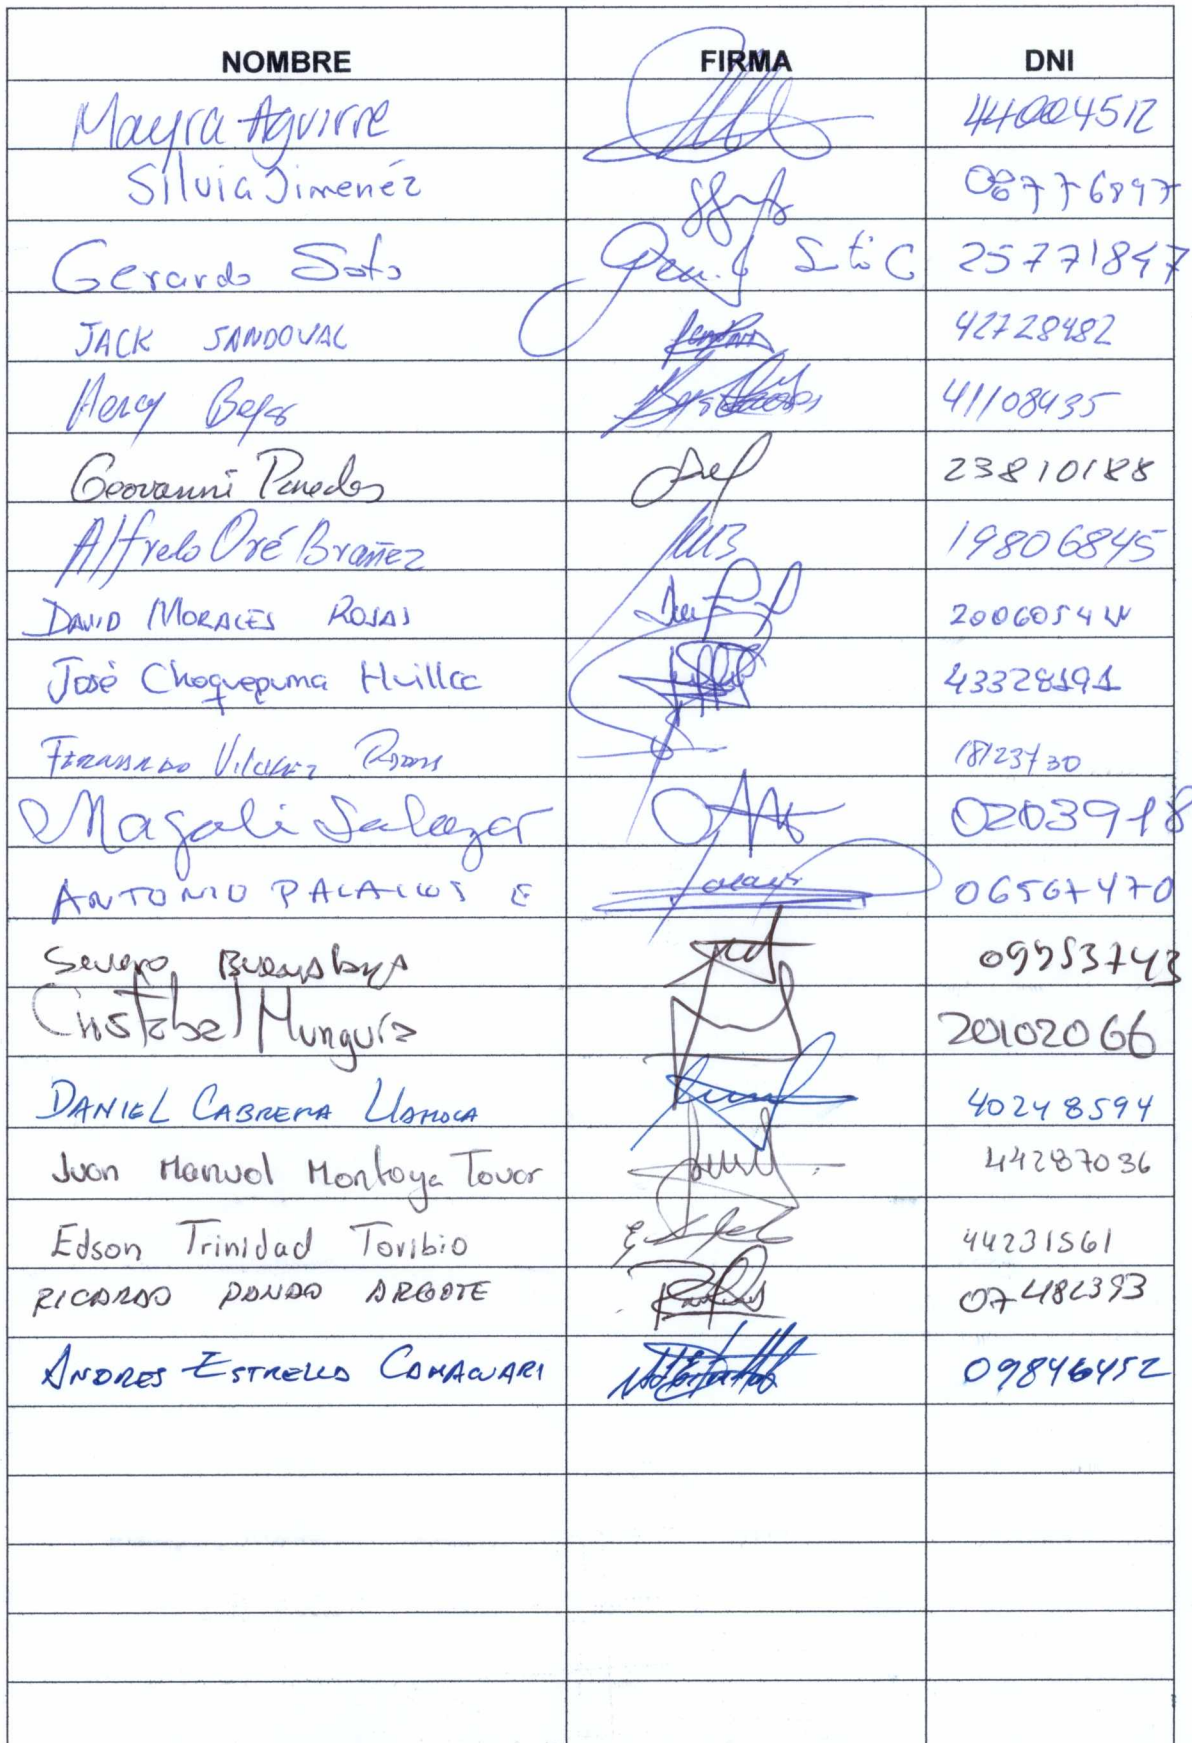 NOMBRE FIRMA DNI
Mayra Aguirre 44004512
Silvia Jimenéz 08776897
Gerardo Soto 25771847
JACK SANDOVAL 42728482
41108435
Geovanni Paredes 23810188
Alfredo Oré Brañez 19806845
DAVID MORALES ROJAS 2006054
José Choquepuma Huillca 43328191
FERNANDO VILCHEZ 18123730
Magali Salazar 02039918
ANTONIO PALACIOS E 06567470
Severo 09953743
Cristobal Munguía 20102066
DANIEL CABRERA 40248594
Juan Manuel Montoya Tovar 44287036
Edson Trinidad Toribio 44231561
RICARDO ARGOTE 07482393
ANDRES ESTRELLA CAMACUARI 09846452